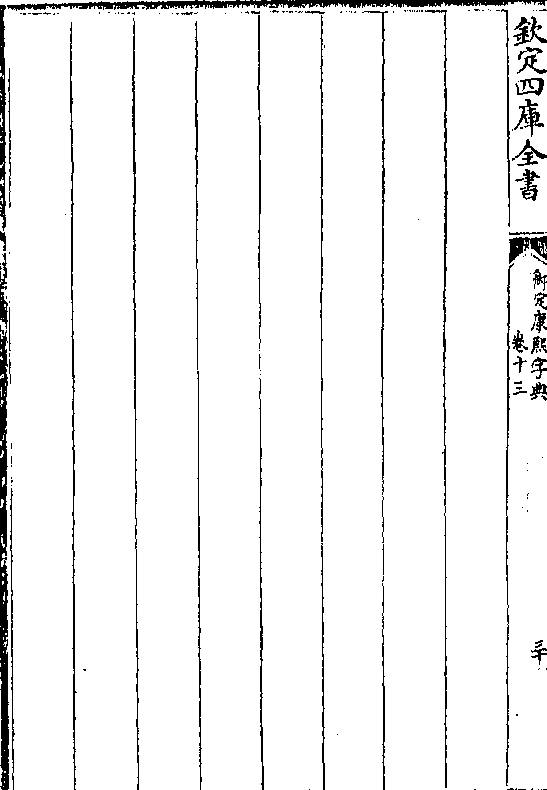 欽定四庫全書
御定康熙字典
卷十三